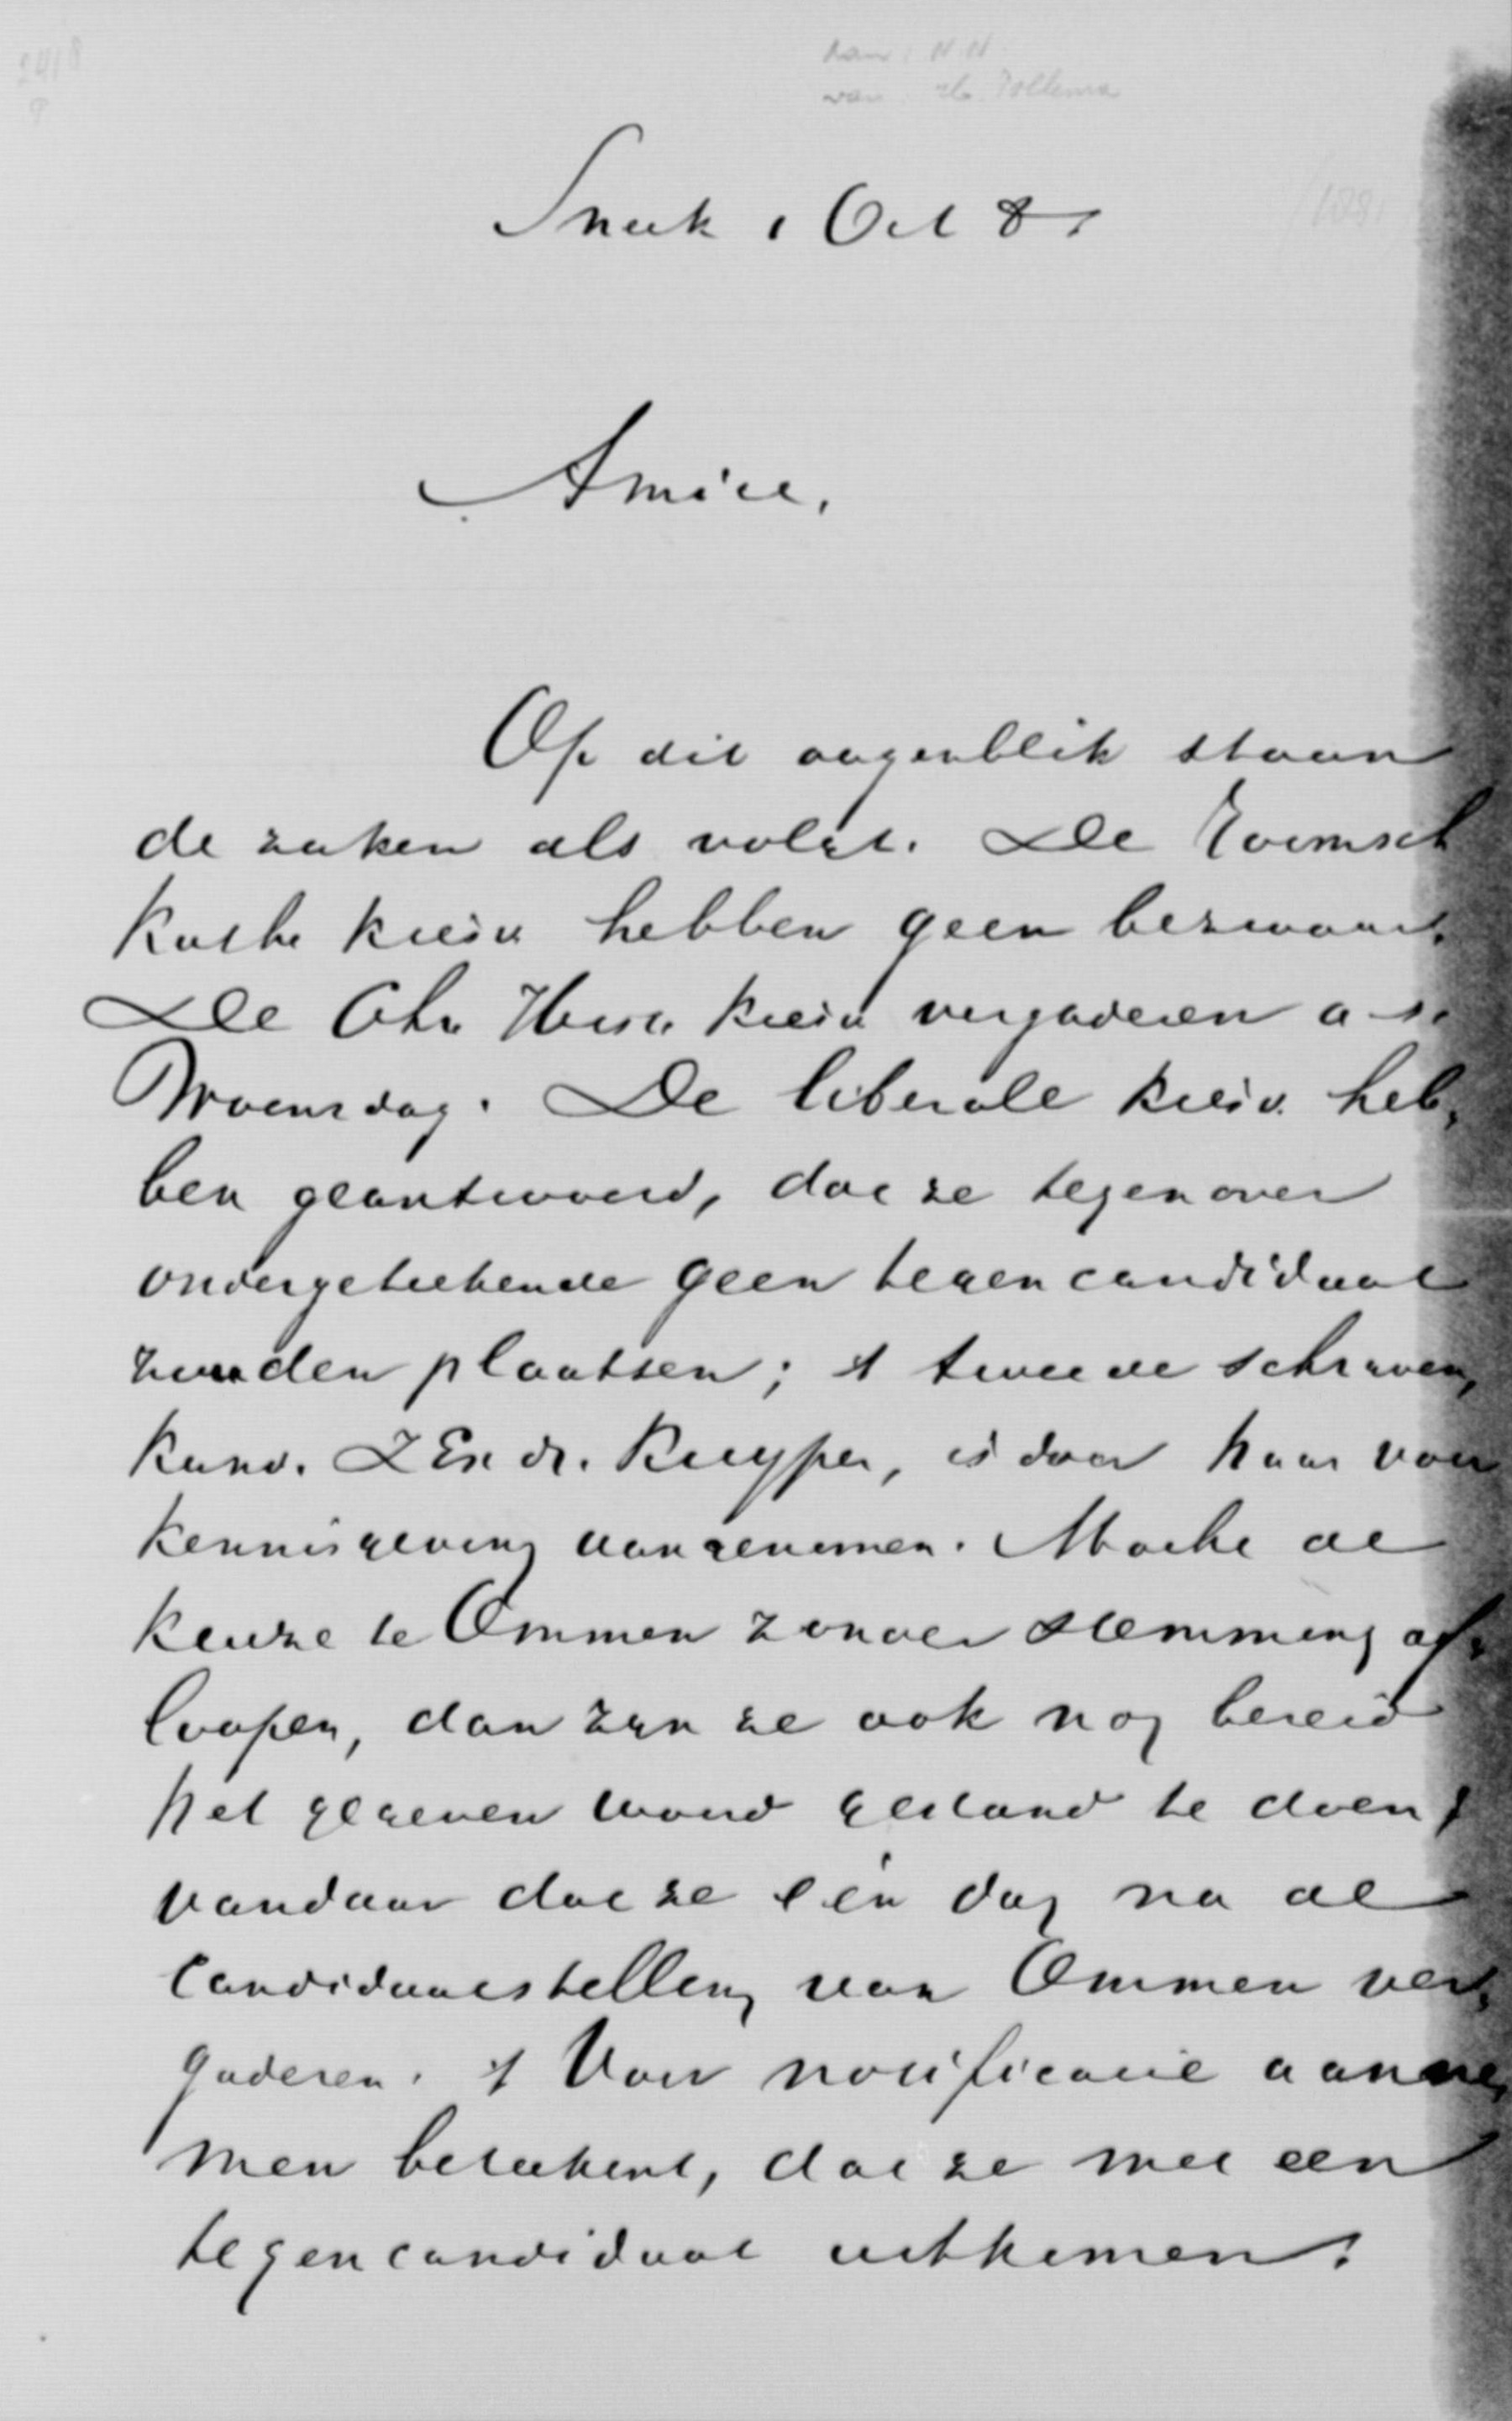 aan: N N
van: H. Pollema
Sneek 1 Oct 8
Amice,
Op dit oogenblik staan
de zaken als volgt. De Roomsch
Kathe kiesv hebben geen bezwaar.
De Chr Hist. kiesv vergaderen a. s.
Woensdag. De liberale kiesv. heb,
ben geantwoord, dat ze tegenover
ondergeteekende geen tegencandidaat
zouden plaatsen; 't tweede schrijven,
kand. Z Ex dr. Kuyper, is door haar voor
kennisgeving aangenomen. Mocht de
keuze te Ommen zonder stemming af,
loopen, dan zijn ze ook nog bereid
het gegeven woord gestand te doen;
vandaar dat ze één dag na de
candidaatstelling van Ommen ver,
gaderen. 't Voor notificatie aanne,
men beteekent, dat ze met een
tegencandidaat uitkomen.